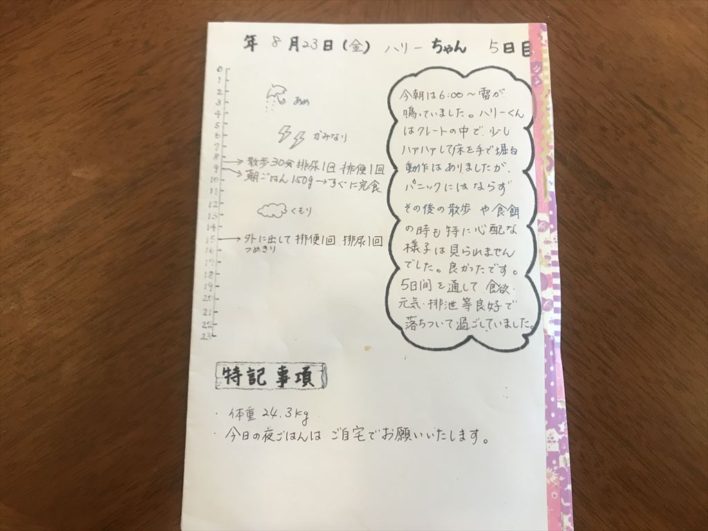 年 8月23日(金) ハリーちゃん 5日目
0
1
2
3
4
5
6
7
8
9
10
11
12
13
14
15
16
17
18
19
20
21
22
23
あめ
かみなり
→散歩30分 排尿1回 排便1回
→朝ごはん150g→すぐに完食
くもり
→外に出して 排便1回 排尿1回
つめきり
今朝は6:00〜雷が
鳴っていました。ハリーくん
はクレートの中で少し
ハァハァして床を手で掘る
動作はありましたが、
パニックにはならず
その後の散歩や食餌
の時も特に心配な
様子は見られません
でした。良かったです。
5日間を通して食欲・
元気・排泄等良好で
落ちついて過ごしていました。
特記事項
・体重 24.3kg
・今日の夜ごはんは ご自宅でお願いいたします。